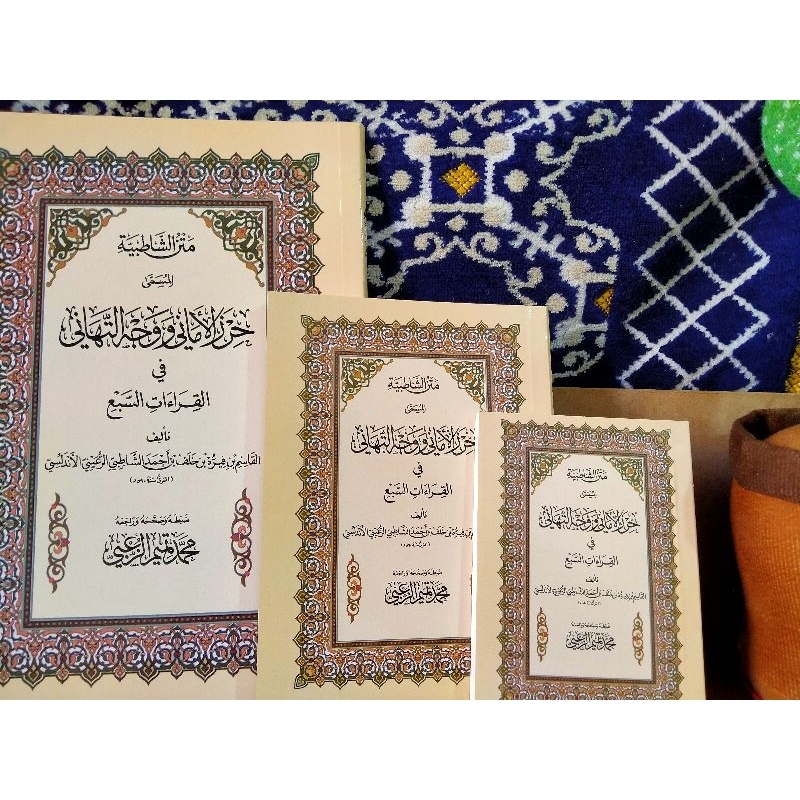 متن الشاطبية
المسمى
حرز الأماني ووجه التهاني
في
القراءات السبع
تأليف
القاسم بن فيرة بن خلف بن أحمد الشاطبي الرعيني الأندلسي
ضبطه وصححه وراجعه
محمد تميم الزعبي
متن الشاطبية
المسمى
حرز الأماني ووجه التهاني
في
القراءات السبع
تأليف
بن فيرة بن خلف بن أحمد الشاطبي الرعيني الأندلسي
ضبطه وصححه وراجعه
محمد تميم الزعبي
متن الشاطبية
المسمى
حرز الأماني ووجه التهاني
في
القراءات السبع
تأليف
القاسم بن فيرة بن خلف بن أحمد الشاطبي الرعيني الأندلسي
ضبطه وصححه وراجعه
محمد تميم الزعبي